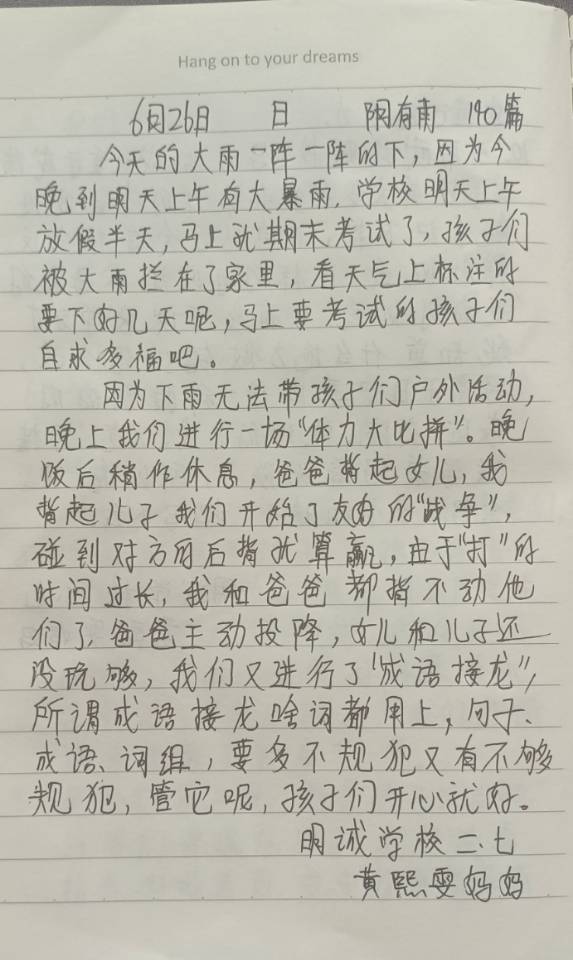 Hang on to your dreams
6月26日 日 阴有雨 140篇
今天的大雨一阵一阵的下，因为今
晚到明天上午有大暴雨，学校明天上午
放假半天，马上就期末考试了，孩子们
被大雨拦在了家里，看天气上标注的
要下好几天呢，马上要考试的孩子们
自求多福吧。
因为下雨无法带孩子们户外活动，
晚上我们进行一场“体力大比拼”。晚
饭后稍作休息，爸爸背起女儿，我
背起儿子我们开始了友好的“战争”，
碰到对方的后背就算赢，由于“打”的
时间过长，我和爸爸都背不动他
们了，爸爸主动投降，女儿和儿子还
没玩够，我们又进行了“成语接龙”，
所谓成语接龙啥词都用上，句子、
成语、词组，要多不规犯又有不够
规犯，管它呢，孩子们开心就好。
明诚学校二.七
黄熙雯妈妈